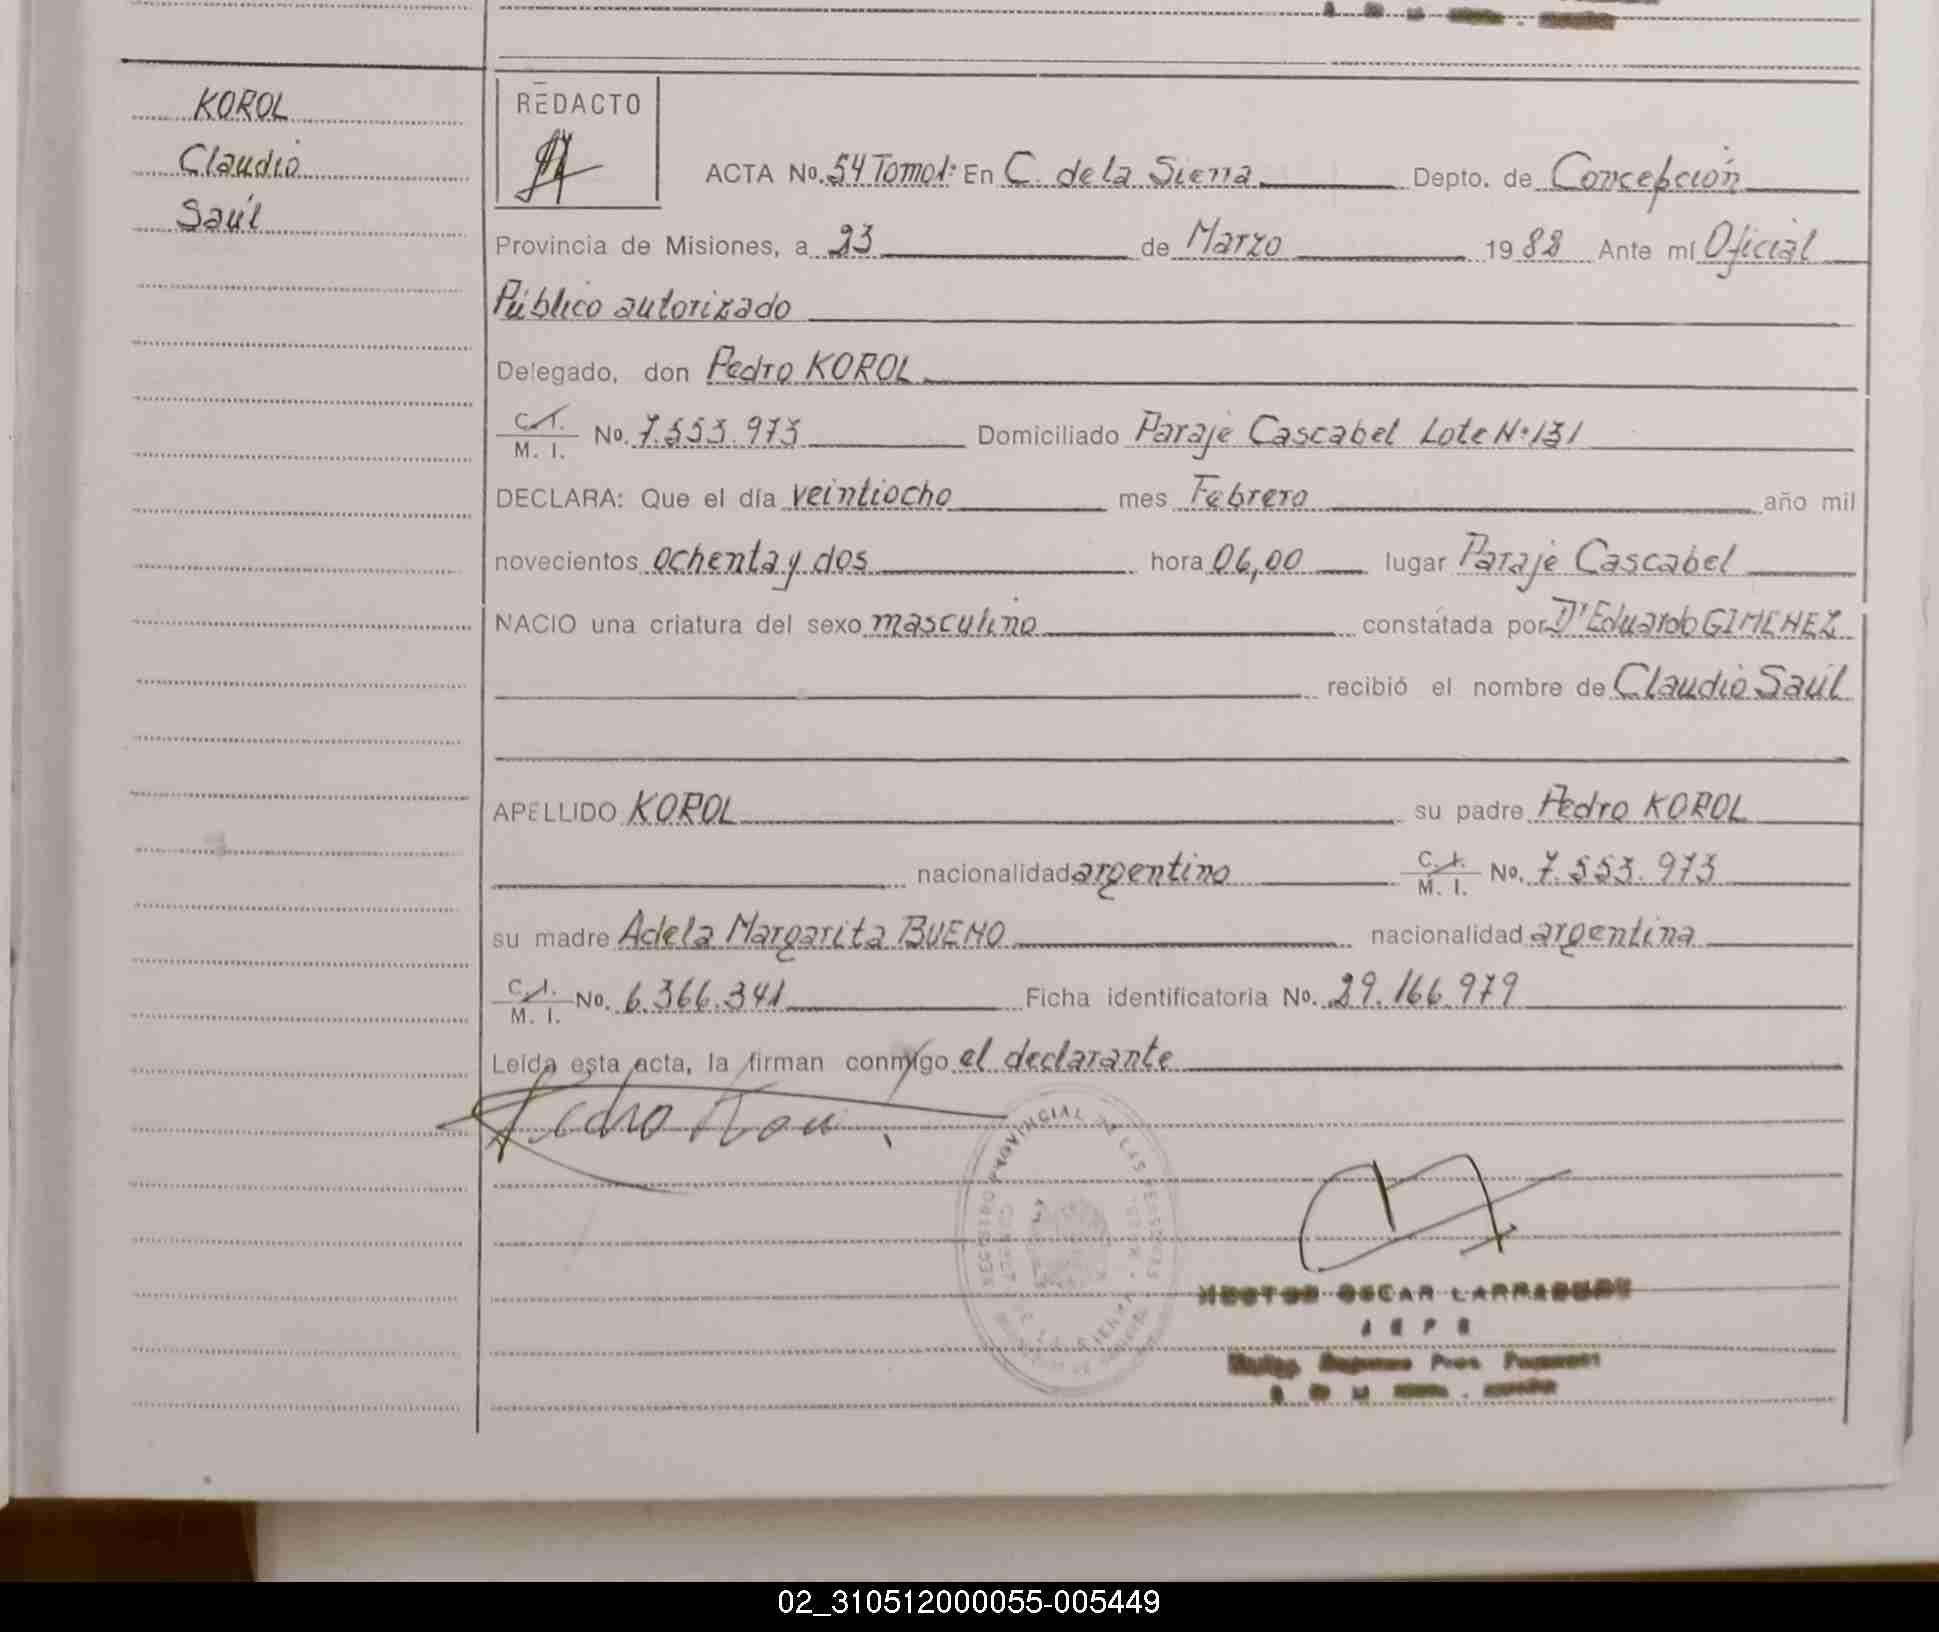 KOROL
Claudio
Saúl
REDACTO
ACTA No. 54 Tomo 1: En C. de la Sierra Depto. de Concepción
Provincia de Misiones, a 23 de Marzo 1982 Ante mí Oficial
Público autorizado
Delegado, don Pedro KOROL
C. I.
M. I. No. 7.553.973 Domiciliado Paraje Cascabel Lote Nº 131
DECLARA: Que el día veintiocho mes Febrero año mil
novecientos ochenta y dos hora 06,00 lugar Paraje Cascabel
NACIO una criatura del sexo masculino constatada por Dr Eduardo GIMENEZ
recibió el nombre de Claudio Saúl
APELLIDO KOROL su padre Pedro KOROL
nacionalidad argentino C. I. M. I. No. 7.553.973
su madre Adela Margarita BUENO nacionalidad argentina
C. I.
M. I. No. 6.366.341 Ficha identificatoria No. 29.166.979
Leída esta acta, la firman conmigo el declarante
REGISTRO PROVINCIAL DE LAS PERSONAS
HECTOR OSCAR
JEFE
02_310512000055-005449